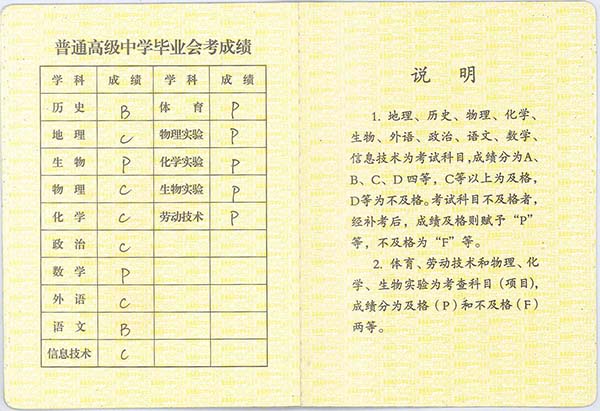 普通高级中学毕业会考成绩
学科 成绩 学科 成绩
历史 B 体育 P
地理 C 物理实验 P
生物 P 化学实验 P
物理 C 生物实验 P
化学 C 劳动技术 P
政治 C
数学 P
外语 C
语文 B
信息技术 C
说 明
1. 地理、历史、物理、化学、
生物、外语、政治、语文、数学、
信息技术为考试科目,成绩分为A、
B、C、D四等，C等以上为及格，
D等为不及格。考试科目不及格者，
经补考后，成绩及格则赋予“P”
等，不及格为“F”等。
2. 体育、劳动技术和物理、化
学、生物实验为考查科目(项目),
成绩分为及格(P)和不及格(F)
两等。